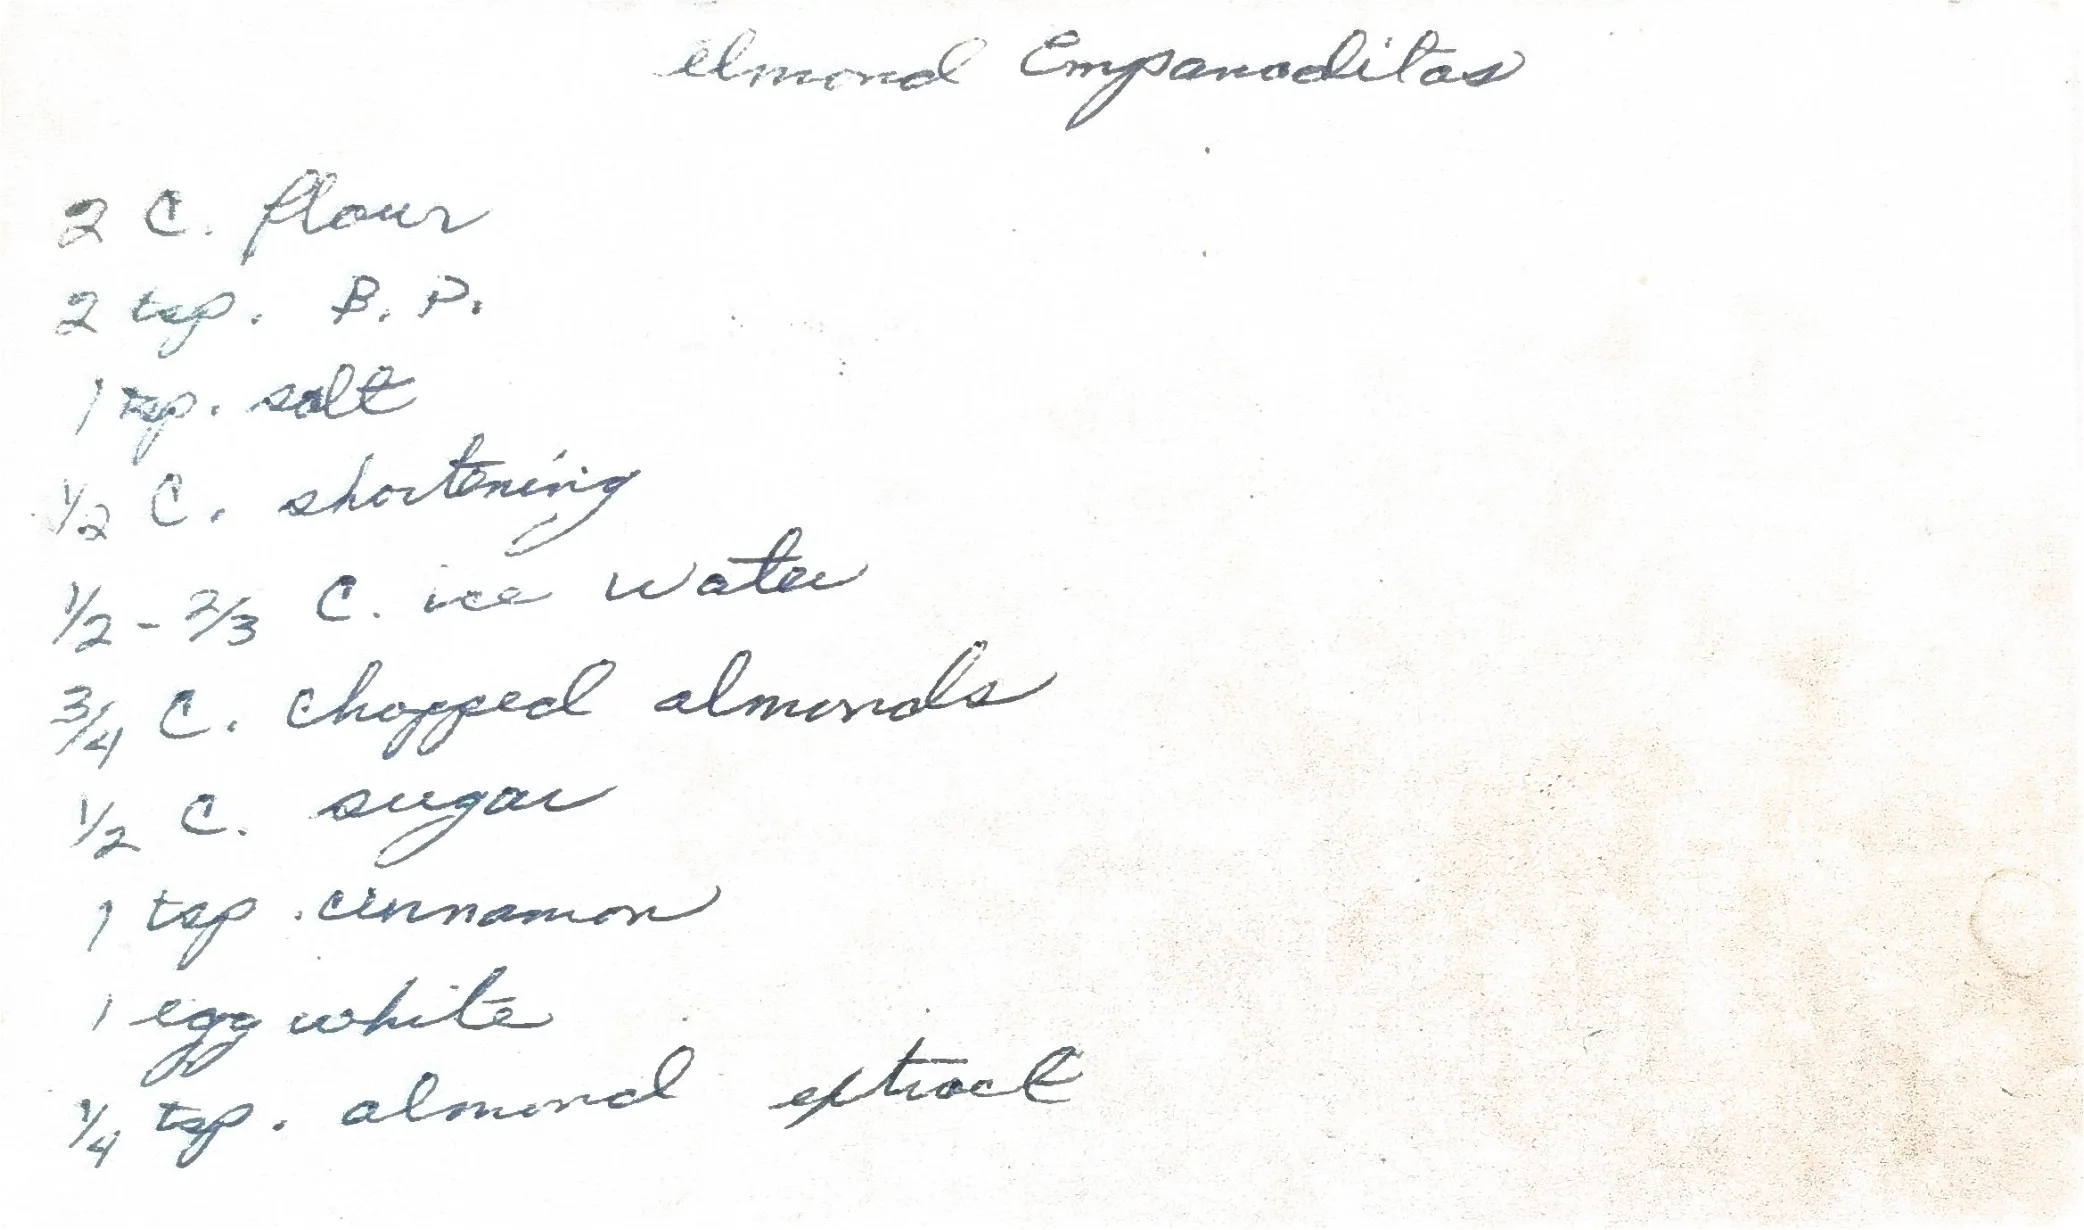 elmond Empanaditas
2 C. flour
2 tsp. B. P.
1 tsp. salt
1/2 C. shortening
1/2 - 2/3 C. ice water
3/4 C. chopped almonds
1/2 C. sugar
1 tsp. cinnamon
1 egg white
1/4 tsp. almond extract